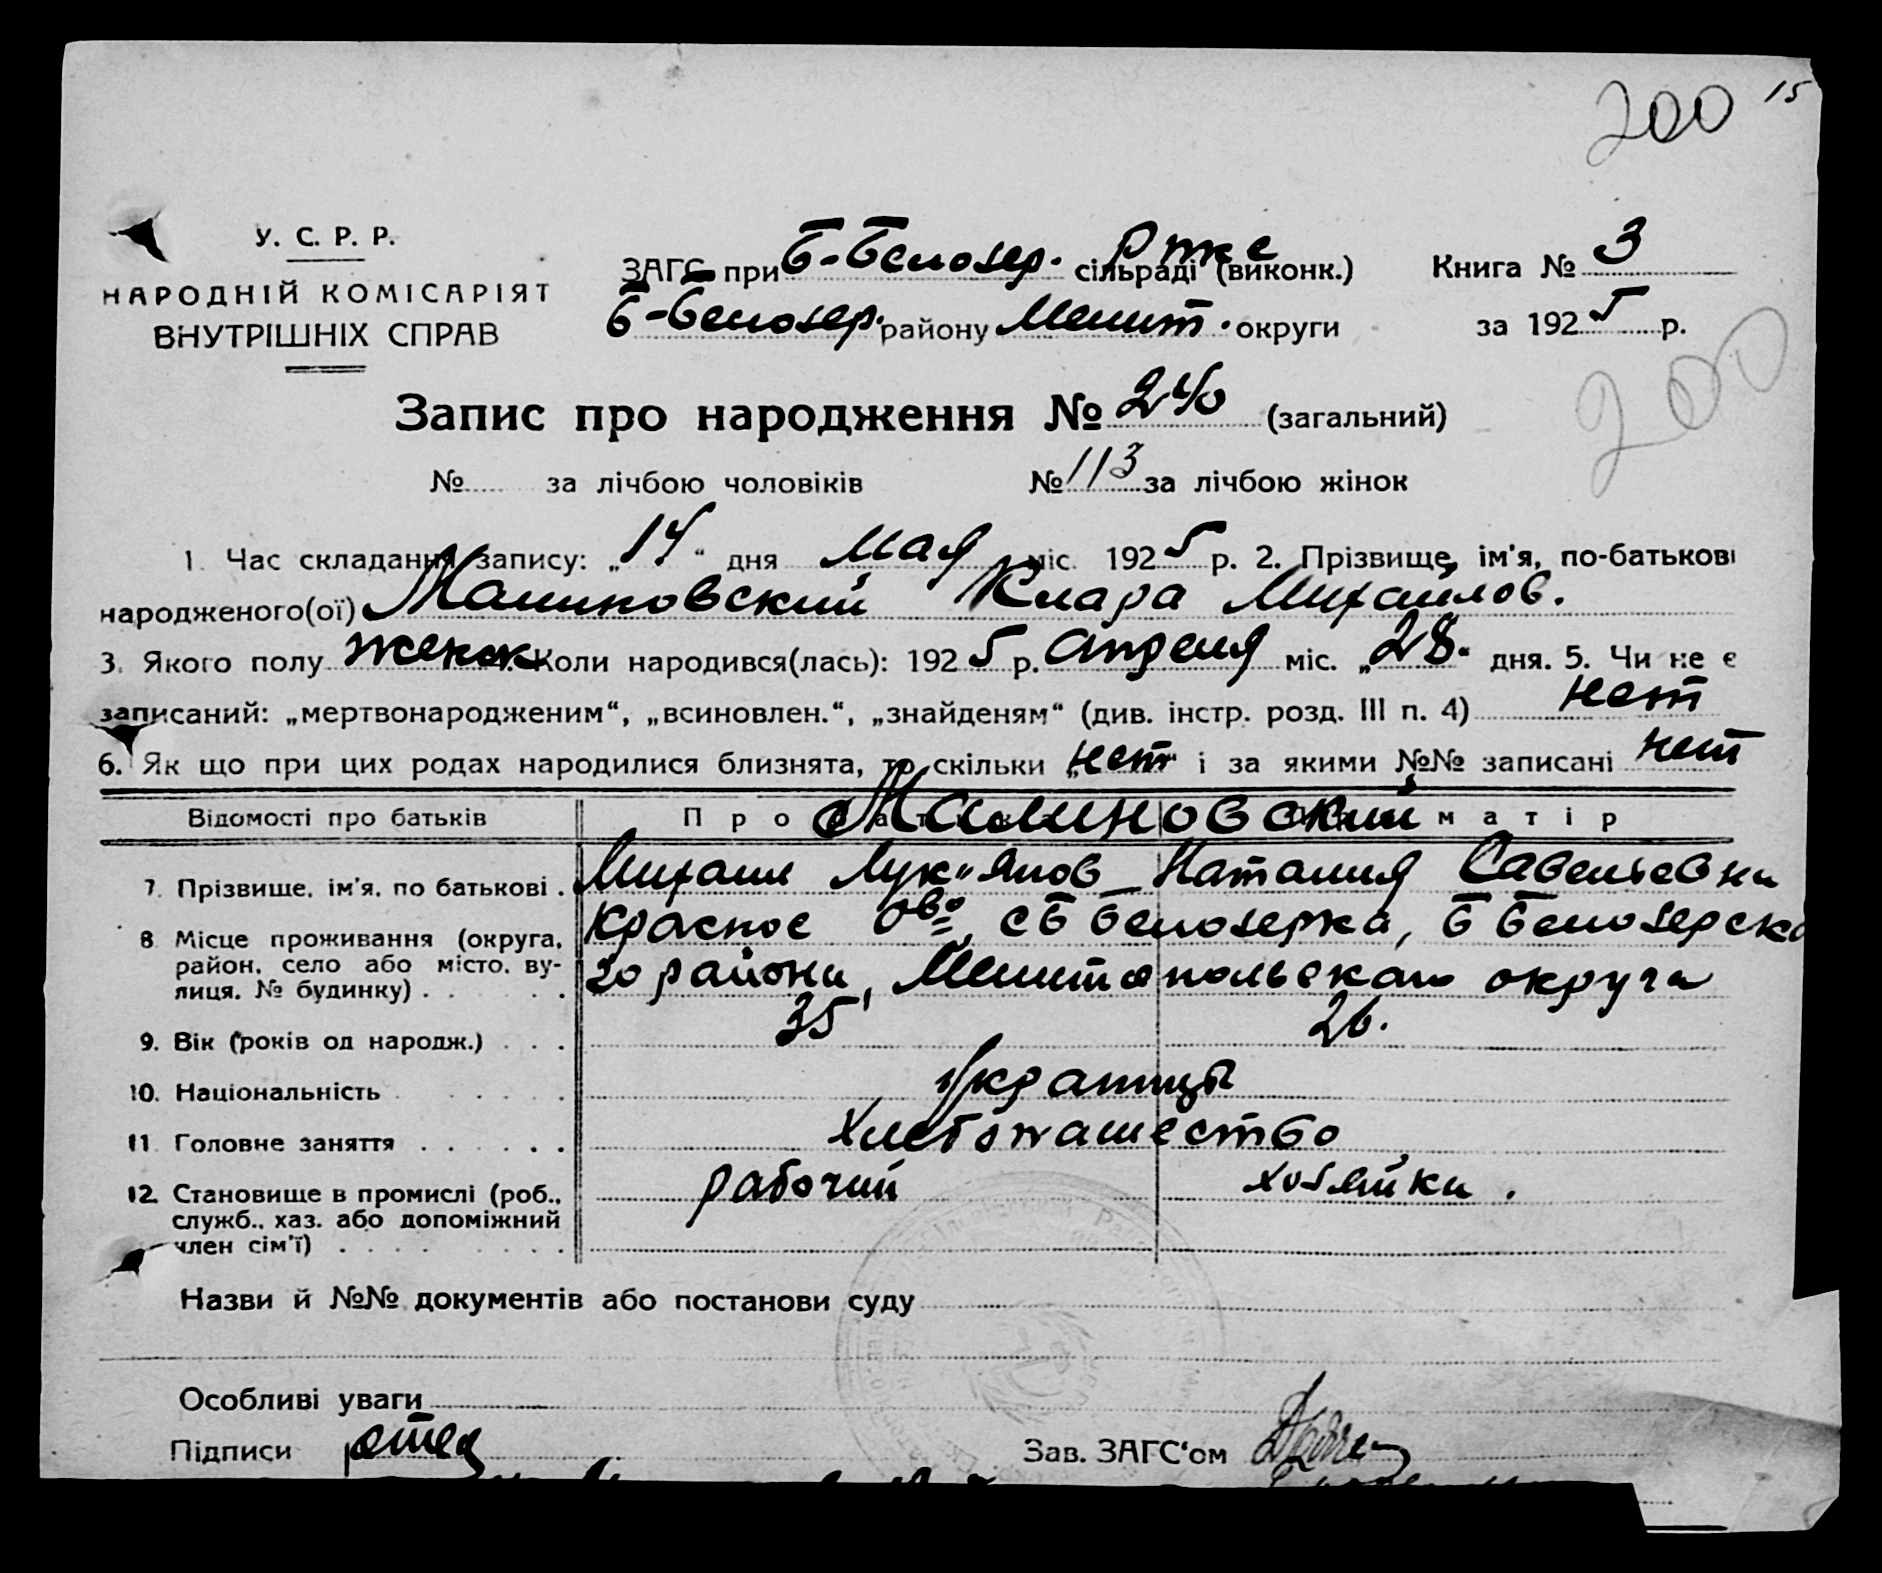 200 15
У. С. Р. Р.
НАРОДНІЙ КОМІСАРІЯТ
ВНУТРІШНІХ СПРАВ
ЗАГС при Б-Белозер. сільраді (виконк.) Книга № 3
Б-Белозер. району Мелит. округи за 1925 р.
200
Запис про народження № 240 (загальний)
№ за лічбою чоловіків № 113 за лічбою жінок
1. Час складання запису: „14“ дня мая міс. 1925 р. 2. Прізвище, ім'я, по-батькові
народженого(ої) Малиновский Клара Михайлов.
3. Якого полу женск. Коли народився(лась): 1925 р. апреля міс. „28“ дня. 5. Чи не є
записаний: „мертвонародженим“, „всиновлен.“, „знайденям“ (див. інстр. розд. III п. 4) нет
6. Як що при цих родах народилися близнята, то скільки „нет“ і за якими №№ записані нет
Відомості про батьків Про матір
Малиновский
7. Прізвище, ім'я, по батькові . Михаил Лук"янов Наталия Савельевна
8. Місце проживання (округа, район, село або місто, ву-лиця, № будинку) . Красное ов⁰, с Б Белозерка, Б Белозерско
го района, Мелитопольского округа
9. Вік (років од народж.) . . . 35 26.
10. Національність . Украинцы
11. Головне заняття . . . . . . Хлебопашество
12. Становище в промислі (роб., рабочий хозяйка .
служб., хаз. або допоміжний
член сім'ї) . . . . . . . .
Назви й №№ документів або постанови суду
Особливі уваги
Підписи отец Зав. ЗАГС'ом